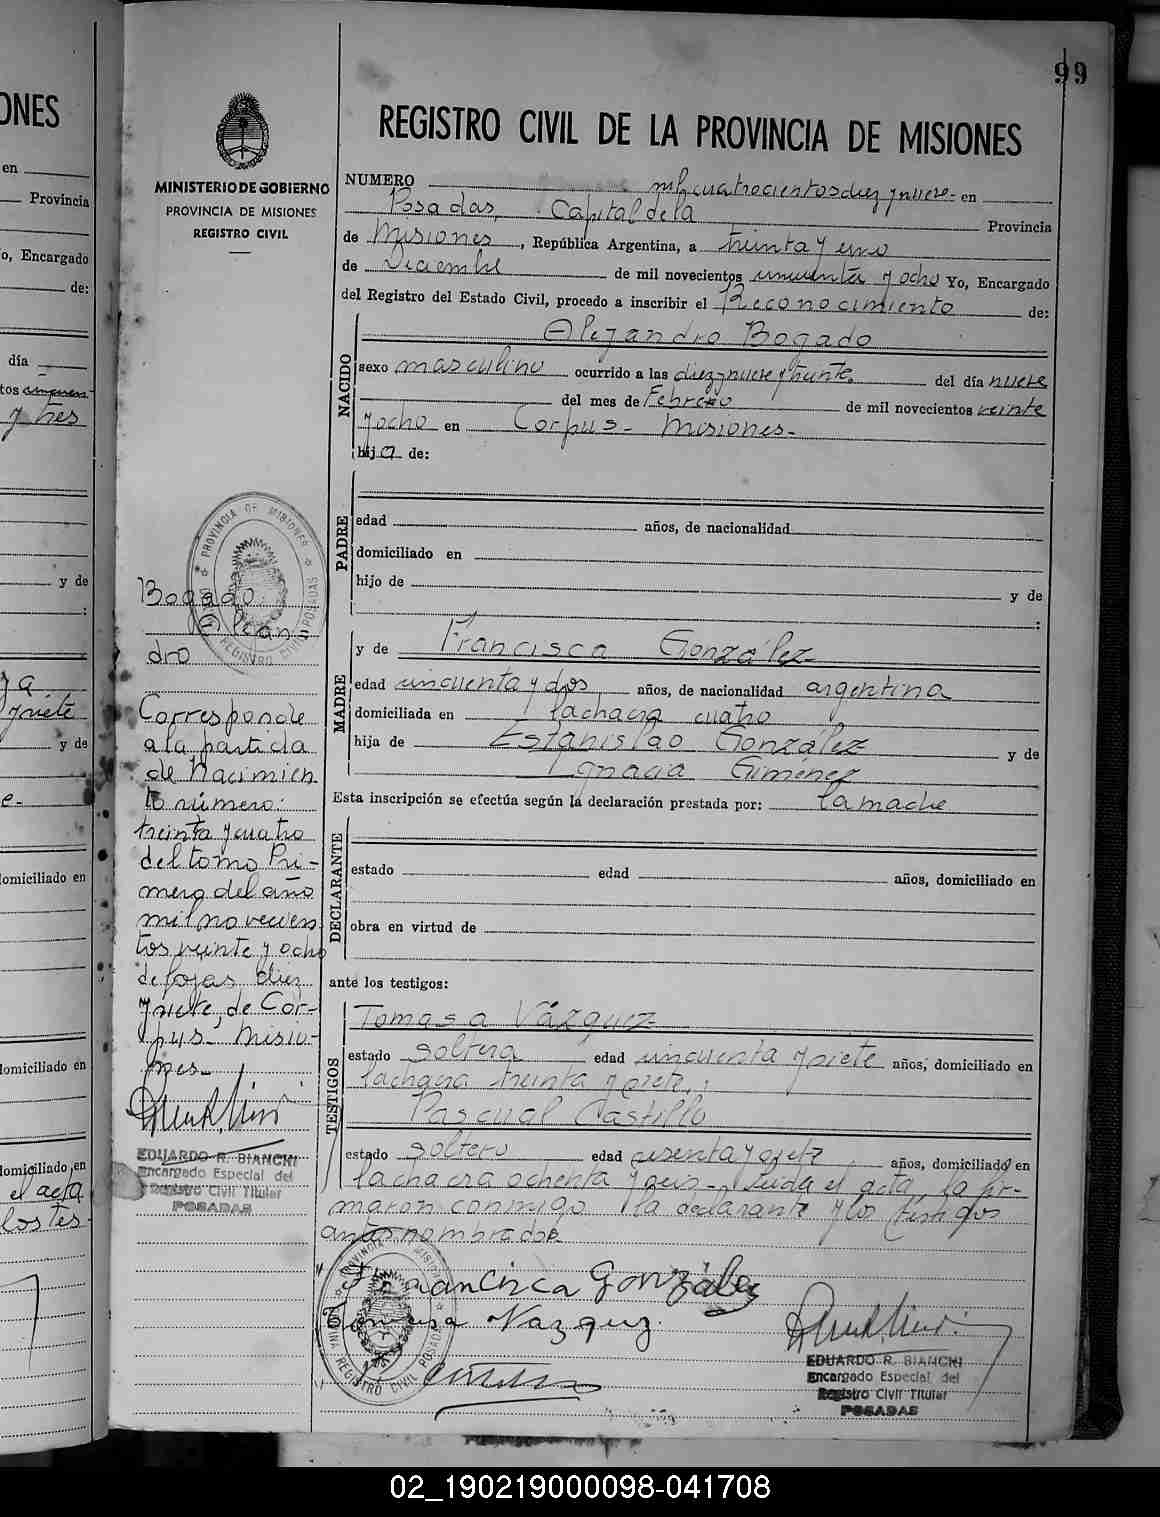 99
REGISTRO CIVIL DE LA PROVINCIA DE MISIONES
MINISTERIO DE GOBIERNO
PROVINCIA DE MISIONES
REGISTRO CIVIL
NUMERO mil cuatrocientos diez y nueve- en
Posadas, Capital de la Provincia
de Misiones, República Argentina, a treinta y uno
de Diciembre de mil novecientos cincuenta y ocho Yo, Encargado
del Registro del Estado Civil, procedo a inscribir el Reconocimiento de:
NACIDO
Alejandro Bogado
sexo masculino ocurrido a las diez y nueve y treinta del día nueve
del mes de Febrero de mil novecientos veinte
y ocho en Corpus- Misiones-
hijo de:
PADRE
edad años, de nacionalidad
domiciliado en
hijo de y de
:
MADRE
y de Francisca González-
edad cincuenta y dos años, de nacionalidad argentina
domiciliada en la chacra cuatro
hija de Estanislao González y de
Ignacia Giménez
Esta inscripción se efectúa según la declaración prestada por: la madre
DECLARANTE
estado edad años, domiciliado en
obra en virtud de
ante los testigos:
TESTIGOS
Tomasa Vázquez-
estado soltera edad cincuenta y siete años, domiciliado en
la chacra treinta y siete;
Pascual Castillo
estado soltero edad años, domiciliado en
la chacra ochenta y seis- Leída el acta, la fir-
maron conmigo la declarante y los testigos
antes nombrados
Francisca González
Tomasa Vazquez
EDUARDO R. BIANCHI
Encargado Especial del
Registro Civil Titular
POSADAS
Bogado
Alejan
dro
Corresponde
a la partida
de Nacimien
to número:
treinta y cuatro
del tomo Pri-
mero del año
mil novecien
tos veinte y ocho
de fojas diez
y siete, de Cor-
pus- Misio-
nes-
EDUARDO R. BIANCHI
Encargado Especial del
Registro Civil Titular
POSADAS
PROVINCIA DE MISIONES
REGISTRO CIVIL POSADAS
PROVINCIA DE MISIONES
REGISTRO CIVIL POSADAS
ONES
en
Provincia
o, Encargado
de:
día
tos
y tres
y de
:
y siete
y de
domiciliado en
domiciliado en
domiciliado en
el acta
los tes-
02_190219000098-041708